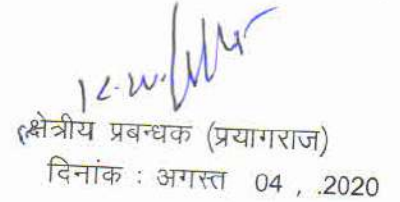 क्षेत्रीय प्रबन्धक (प्रयागराज)
दिनांक : अगस्त 04 , .2020